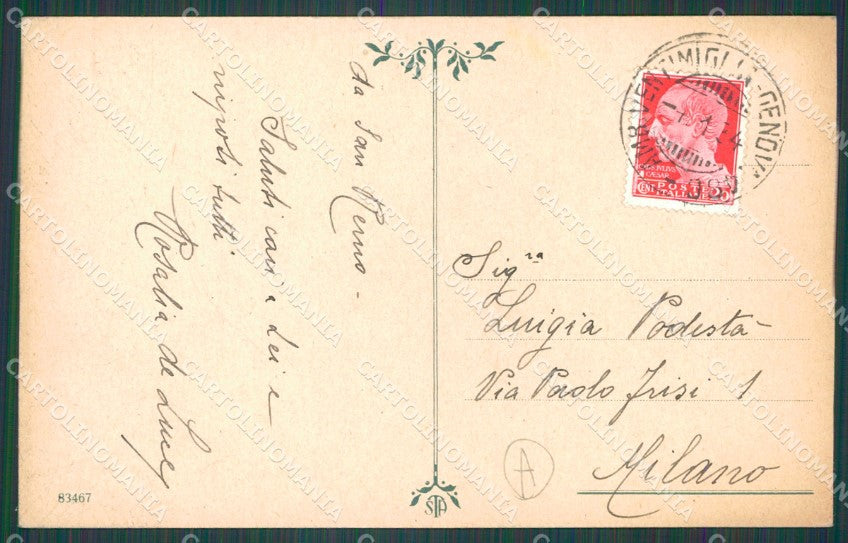 da San Remo -
Saluti cari a Lei e
nipoti tutti
Rosalia de
83467
STA
AMB. VENTIMIGLIA-GENOVA
IVLIVS
CAESAR
CENT POSTE
ITALIANE
Sig.ra
Luigia Podestà
Via Paolo Frisi 1
Milano
A
CARTOLINOMANIA